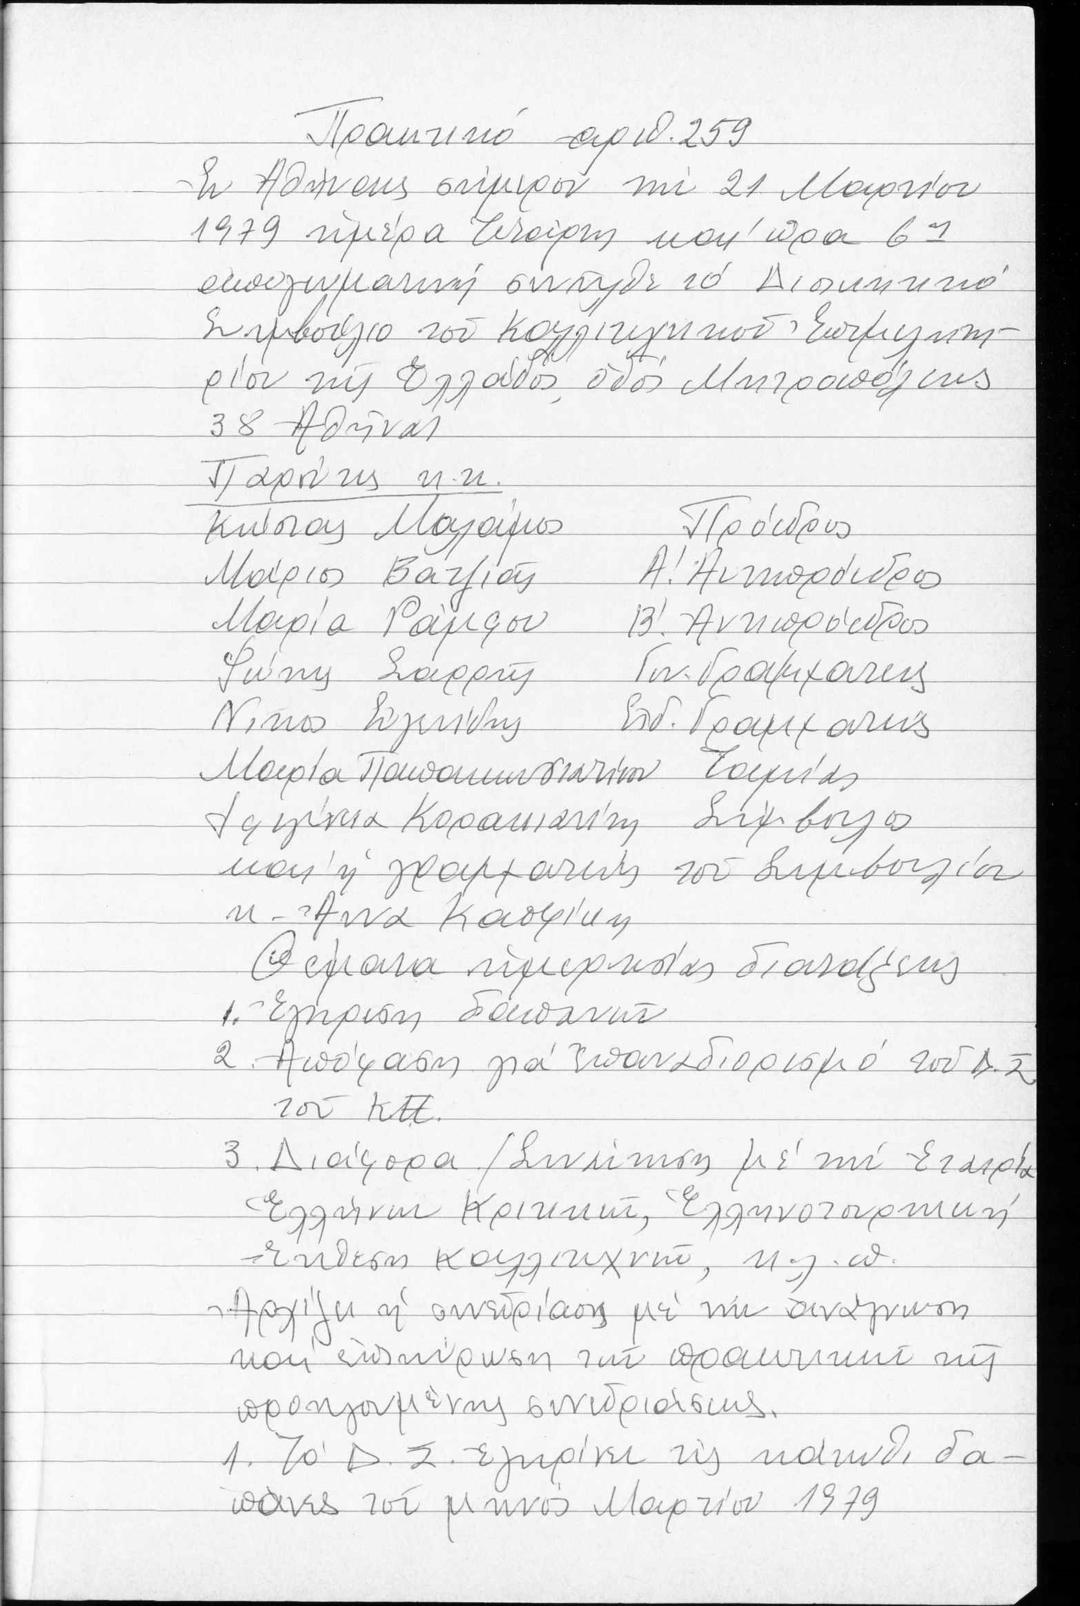 Πρακτικό αριθ. 259
Ἐν Ἀθήναις σήμερον τήν 21 Μαρτίου
1979 ἡμέρα Τετάρτη καί ὥρα 6η
ἀπογευματινή συνῆλθε τό Διοικητικό
Συμβούλιο τοῦ Καλλιτεχνικοῦ Ἐπιμελητη-
ρίου τῆς Ἑλλάδος, ὁδός Μητροπόλεως
38 Ἀθῆναι
Παρόντες κ.κ.
Κώστας Μαλάμος Πρόεδρος
Μάριος Βατζιᾶς Α! Ἀντιπρόεδρος
Μαρία Ράμφου Β! Ἀντιπρόεδρος
Φώτης Σαρρῆς Γεν. Γραμματεύς
Νίκος Εἰδ. Γραμματεύς
Μαρία Παπακωνσταντίνου Ταμίας
Ἰφιγένεια Σύμβουλος
καί ἡ γραμματεύς τοῦ Συμβουλίου
κ. Ἄννα Καψίκη
Θέματα ἡμερησίας διατάξεως
1. Ἔγκριση δαπανῶν
2. Ἀπόφαση γιά ἐπαναδιορισμό τοῦ Δ.Σ
τοῦ
3. Διάφορα / Συνάντηση μέ τήν Ἑταιρία
Ἑλλήνων Κριτικῶν, Ἑλληνοτουρκική
Ἔκθεση καλλιτεχνῶν, κ.λ.π.
Ἀρχίζει ἡ συνεδρίαση μέ τήν ἀνάγνωση
καί ἐπικύρωση τῶν πρακτικῶν τῆς
προηγουμένης συνεδριάσεως.
1. Τό Δ.Σ. ἐγκρίνει τίς κάτωθι δα-
πάνες τοῦ μηνός Μαρτίου 1979